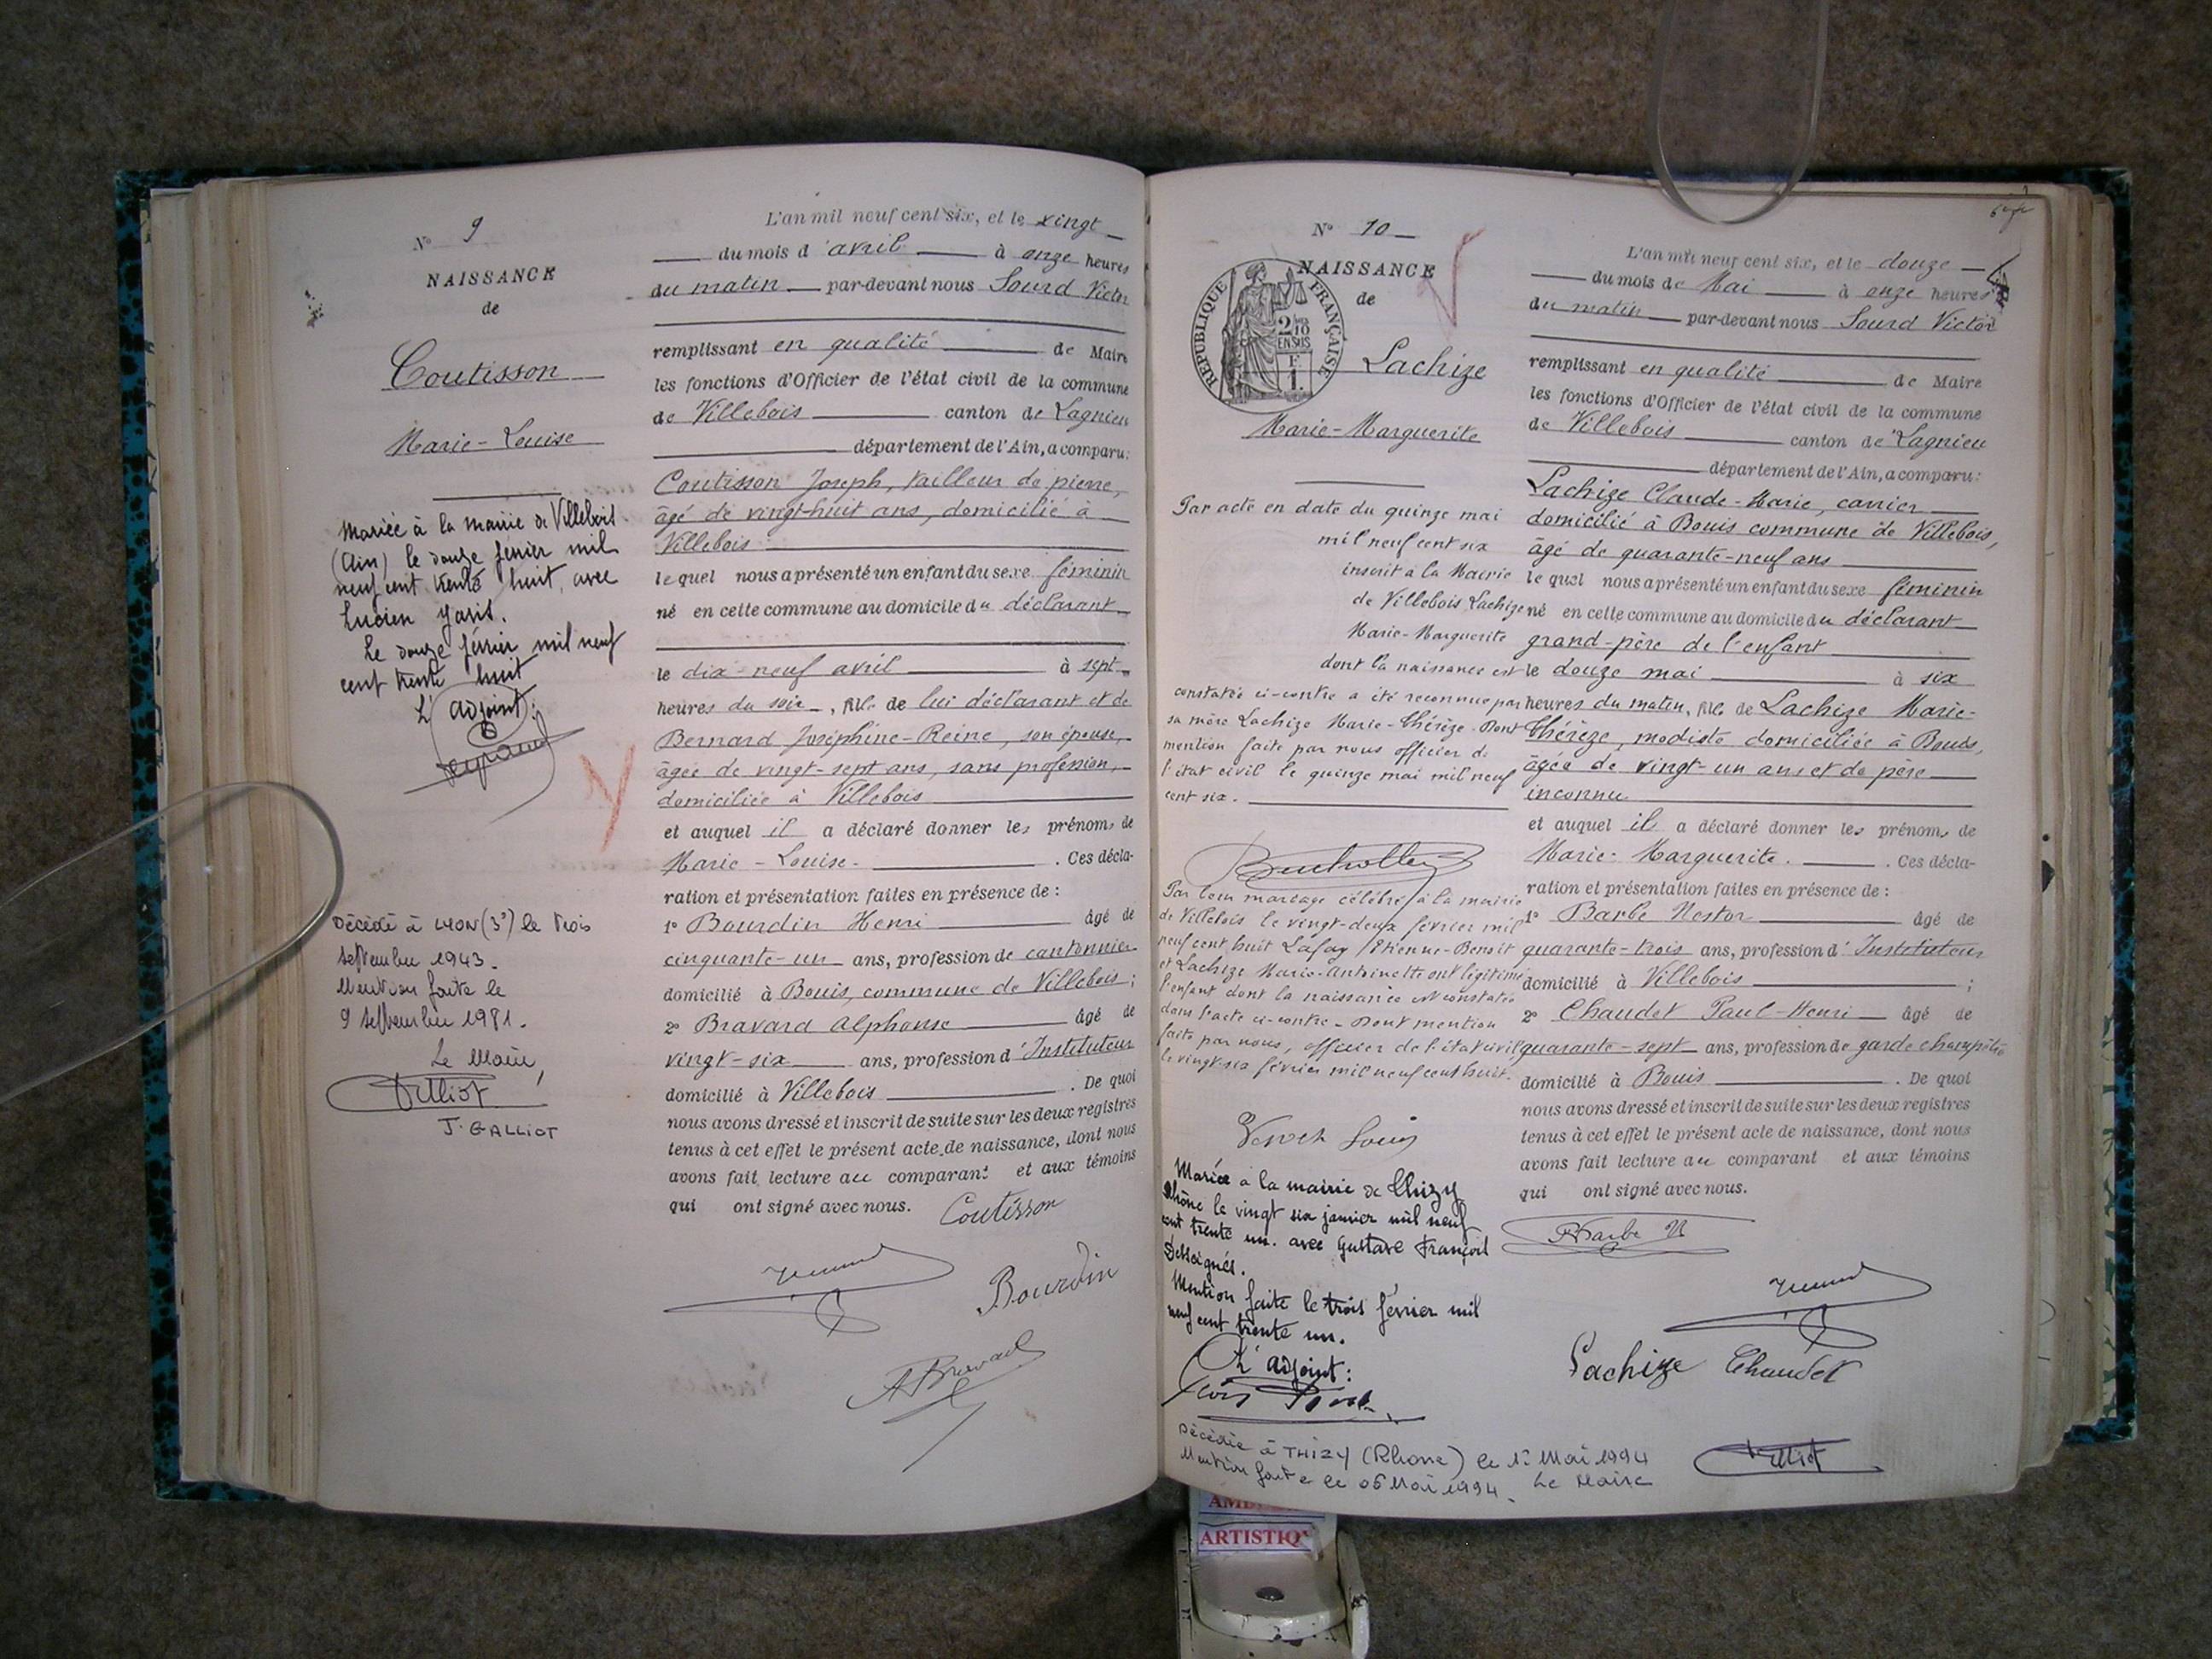 N° 9
NAISSANCE
de
Coutisson
Marie-Louise
Mariée à la mairie de Villebois
(Ain) le douze février mil
neuf cent trente huit, avec
Lucien Yaris.
Le douze février mil neuf
cent trente huit
L'adjoint:
Décédé à LYON (3°) le trois
septembre 1943.
Mention faite le
9 septembre 1981.
Le Maire,
J. GALLIOT
L'an mil neuf cent six, et le vingt
du mois d'avril à onze heures
du matin par-devant nous Sourd Victor
remplissant en qualité de Maire
les fonctions d'Officier de l'état civil de la commune
de Villebois canton de Lagnieu
département de l'Ain, a comparu:
Coutisson Joseph, tailleur de pierre,
âgé de vingt-huit ans, domicilié à
Villebois
lequel nous a présenté un enfant du sexe féminin
né en cette commune au domicile du déclarant
le dix-neuf avril à sept
heures du soir, fille de lui déclarant et de
Bernard Joséphine-Reine, son épouse,
âgée de vingt-sept ans, sans profession,
domiciliée à Villebois
et auquel il a déclaré donner les prénoms de
Marie-Louise. Ces décla-
ration et présentation faites en présence de :
1° Bourdin Henri âgé de
cinquante-un ans, profession de cantonnier
domicilié à Bouis, commune de Villebois;
2° Bravard Alphonse âgé de
vingt-six ans, profession d'Instituteur
domicilié à Villebois. De quoi
nous avons dressé et inscrit de suite sur les deux registres
tenus à cet effet le présent acte de naissance, dont nous
avons fait lecture au comparant et aux témoins
qui ont signé avec nous. Coutisson
Bourdin
A Bravard
N° 10
NAISSANCE
de
REPUBLIQUE FRANÇAISE
2/10
EN SUS
F
1.
Lachize
Marie-Marguerite
Par acte en date du quinze mai
mil neuf cent six
inscrit à la Mairie
de Villebois Lachize
Marie-Marguerite
dont la naissance est
constatée ci-contre a été reconnue par
sa mère Lachize Marie-Thérèze. Dont
mention faite par nous officier de
l'état civil le quinze mai mil neuf
cent six.
Par leur mariage célébré à la mairie
de Villebois le vingt-deux février mil
neuf cent huit Lafay Etienne-Benoit
et Lachize Marie-Antoinette ont légitimé
l'enfant dont la naissance est constatée
dans l'acte ci-contre. Dont mention
faite par nous, officier de l'état civil
le vingt-six février mil neuf cent huit.
Mariée à la mairie de Thizy
Rhône le vingt six janvier mil neuf
cent trente un. avec Gustave François
Dessaignes.
Mention faite le trois février mil
neuf cent trente un.
L'adjoint:
Décédée à THIZY (Rhône) le 1° Mai 1994
Mention faite le 06 Mai 1994. Le Maire
L'an mil neuf cent six, et le douze
du mois de Mai à onze heures
du matin par-devant nous Sourd Victor
remplissant en qualité de Maire
les fonctions d'Officier de l'état civil de la commune
de Villebois canton de Lagnieu
département de l'Ain, a comparu:
Lachize Claude-Marie, carrier
domicilié à Bouis commune de Villebois,
âgé de quarante-neuf ans
lequel nous a présenté un enfant du sexe féminin
né en cette commune au domicile du déclarant
grand-père de l'enfant
le douze mai à six
heures du matin, fille de Lachize Marie-
Thérèze, modiste domiciliée à Bouis,
âgée de vingt-un ans et de père
inconnu
et auquel il a déclaré donner les prénoms de
Marie-Marguerite. Ces décla-
ration et présentation faites en présence de :
1° Barbe Nestor âgé de
quarante-trois ans, profession d'Instituteur
domicilié à Villebois ;
2° Chaudet Paul-Henri âgé de
quarante-sept ans, profession de garde champêtre
domicilié à Bouis. De quoi
nous avons dressé et inscrit de suite sur les deux registres
tenus à cet effet le présent acte de naissance, dont nous
avons fait lecture au comparant et aux témoins
qui ont signé avec nous.
Barbe N
Lachize Chaudet
ARTISTIQ